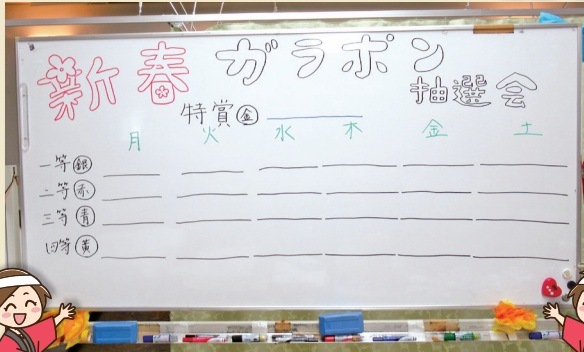 新春ガラポン
抽選会
特賞㊎
月 火 水 木 金 土
一等 銀
二等 赤
三等 青
四等 黄